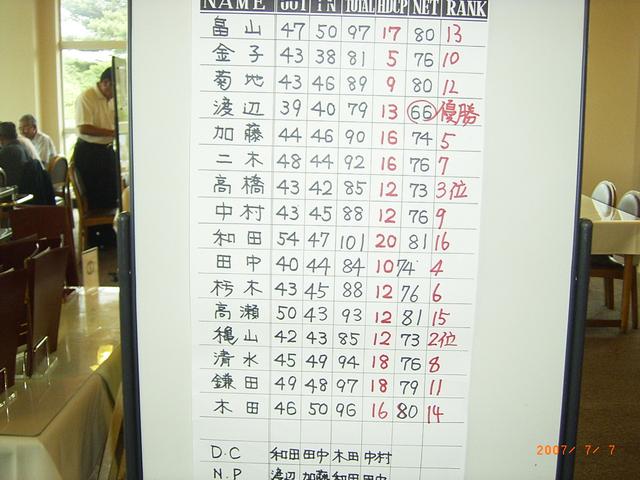 NAME OUT IN TOTAL HDCP NET RANK
畠山 47 50 97 17 80 13
金子 43 38 81 5 76 10
菊地 43 46 89 9 80 12
渡辺 39 40 79 13 66 優勝
加藤 44 46 90 16 74 5
二木 48 44 92 16 76 7
高橋 43 42 85 12 73 3位
中村 43 45 88 12 76 9
和田 54 47 101 20 81 16
田中 40 44 84 10 74 4
栃木 43 45 88 12 76 6
高瀬 50 43 93 12 81 15
穐山 42 43 85 12 73 2位
清水 45 49 94 18 76 8
鎌田 49 48 97 18 79 11
木田 46 50 96 16 80 14
D.C 和田 田中 木田 中村
N.P 渡辺 加藤 和田 田中
2007/ 7/ 7